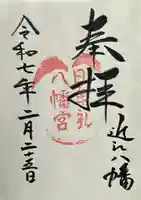 奉拝
近江八幡
日牟禮
八幡宮
令和七年二月二十五日